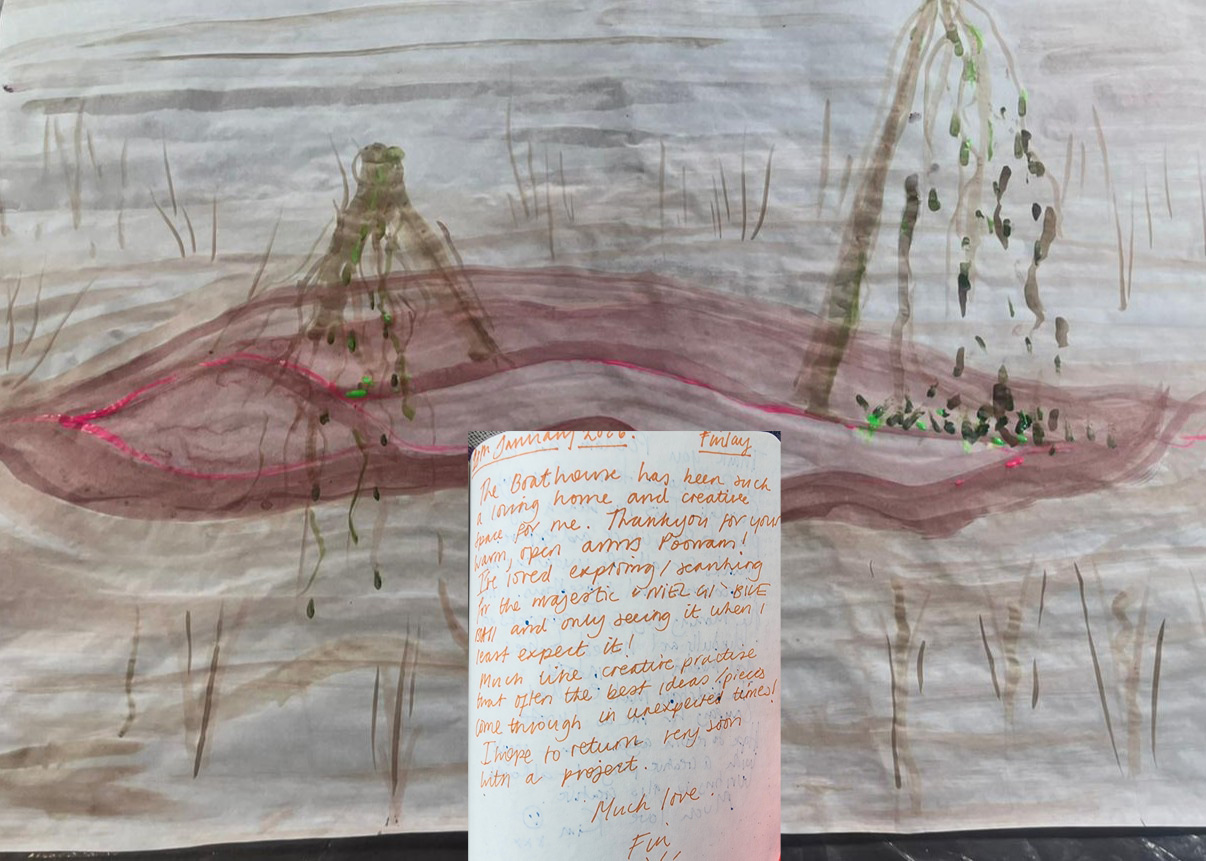 January 2026. Finlay
The Boathouse has been such
a loving home and creative
space for me. Thankyou for your
warm, open arms Poonam!
I've loved exploring / searching
for the majestic "NIEL GI" BLUE
BALL and only seeing it when I
least expect it!
Much like creative practise
that often the best ideas/pieces
come through in unexpected times!
I hope to return very soon
with a project.
Much love
Fin